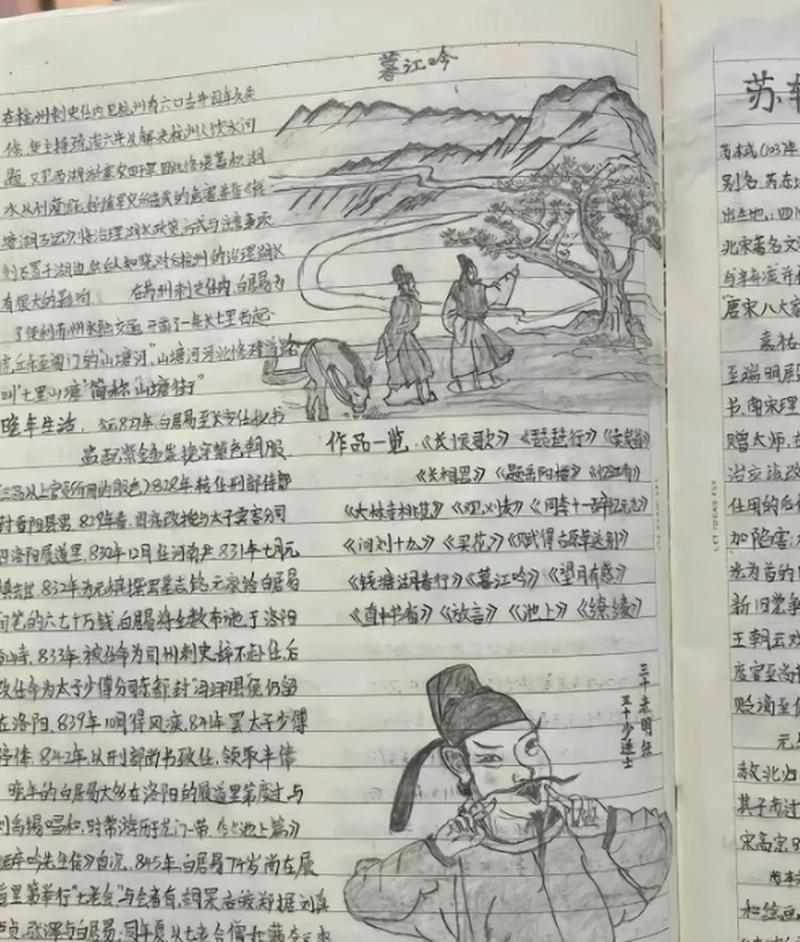 暮江吟
在杭州刺史任内见杭州有六口古井因年久失
修,便主持疏浚六井以解决杭州人饮水问
题,又见西湖淤塞农田
塘湖石记》,将治理湖水政策方式与注意事项
刻石置于湖边,供后人知晓对杭州的治理湖水
有很大的影响 在苏州刺史任内,白居易为
了便利苏州水陆交通,开凿了一条长七里西起
虎丘东至阊门的“山塘河”,山塘河河北修建道路
叫“七里山塘”简称“山塘街”
晚年生活,
当配紫金鱼袋,穿紫色朝服
(三品以上官员所用的服色)828年转任刑部侍郎
封晋阳县男,829年春,因病改授与太子宾客分司
回洛阳履道里,830年12月任河南尹,831年七月元
稹去世,832年为元稹撰写墓志铭,元家给白居易
润笔的六七十万钱,白居易将全数布施于洛阳
香山寺,833年,被任命为同州刺史辞不赴任后
改任命为太子少傅分司东都,封冯翊县侯仍留
在洛阳,839年10月得风疾,841年罢太子少傅
停俸,842年以刑部尚书致仕,领取半俸
晚年的白居易大多在洛阳的履道里第度过,与
刘禹锡唱和,时常游历于龙门一带,作《池上篇》
《醉吟先生传》自况,845年,白居易74岁,尚在履
道里第举行“七老会”,与会者有:胡杲、吉皎、郑据、刘真
卢贞、张浑与白居易;同年夏
作品一览:《长恨歌》《琵琶行》《卖炭翁》
《长相思》《题岳阳楼》《忆江南》
《大林寺桃花》《观刈麦》
《问刘十九》《买花》《赋得古原草送别》
《钱塘湖春行》《暮江吟》《望月有感》
《直中书省》《放言》《池上》《缭绫》
三十老明经
五十少进士
LET IDEAS FLY
苏轼
苏轼(1037年
别名,苏东坡
出生地:四川
北宋著名文
与辛弃疾并
“唐宋八大家
嘉祐
至端明殿
书,南宋理
赠太师,
治应该改
任用的后
加陷害,
光为首的
新旧党争
王朝云
度宣至尚
贬谪至
元
赦北归
其子苏过
宋高宗
苏轼
和绘画